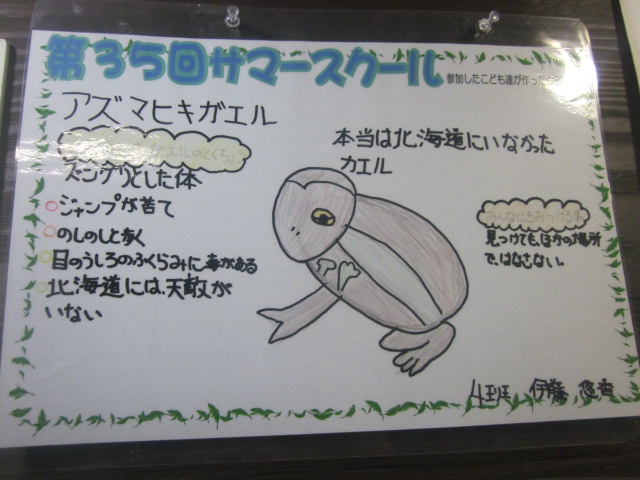 第35回サマースクール
参加したこども達が作った
アズマヒキガエル
ガエルのとくちょう
ズングリとした体
ジャンプが苦て
のしのしと歩く
目のうしろのふくらみに毒がある
北海道には、天敵が
いない
本当は北海道にいなかった
カエル
見つけても、ほかの場所
で、はなさない。
4班 伊藤 悠杏